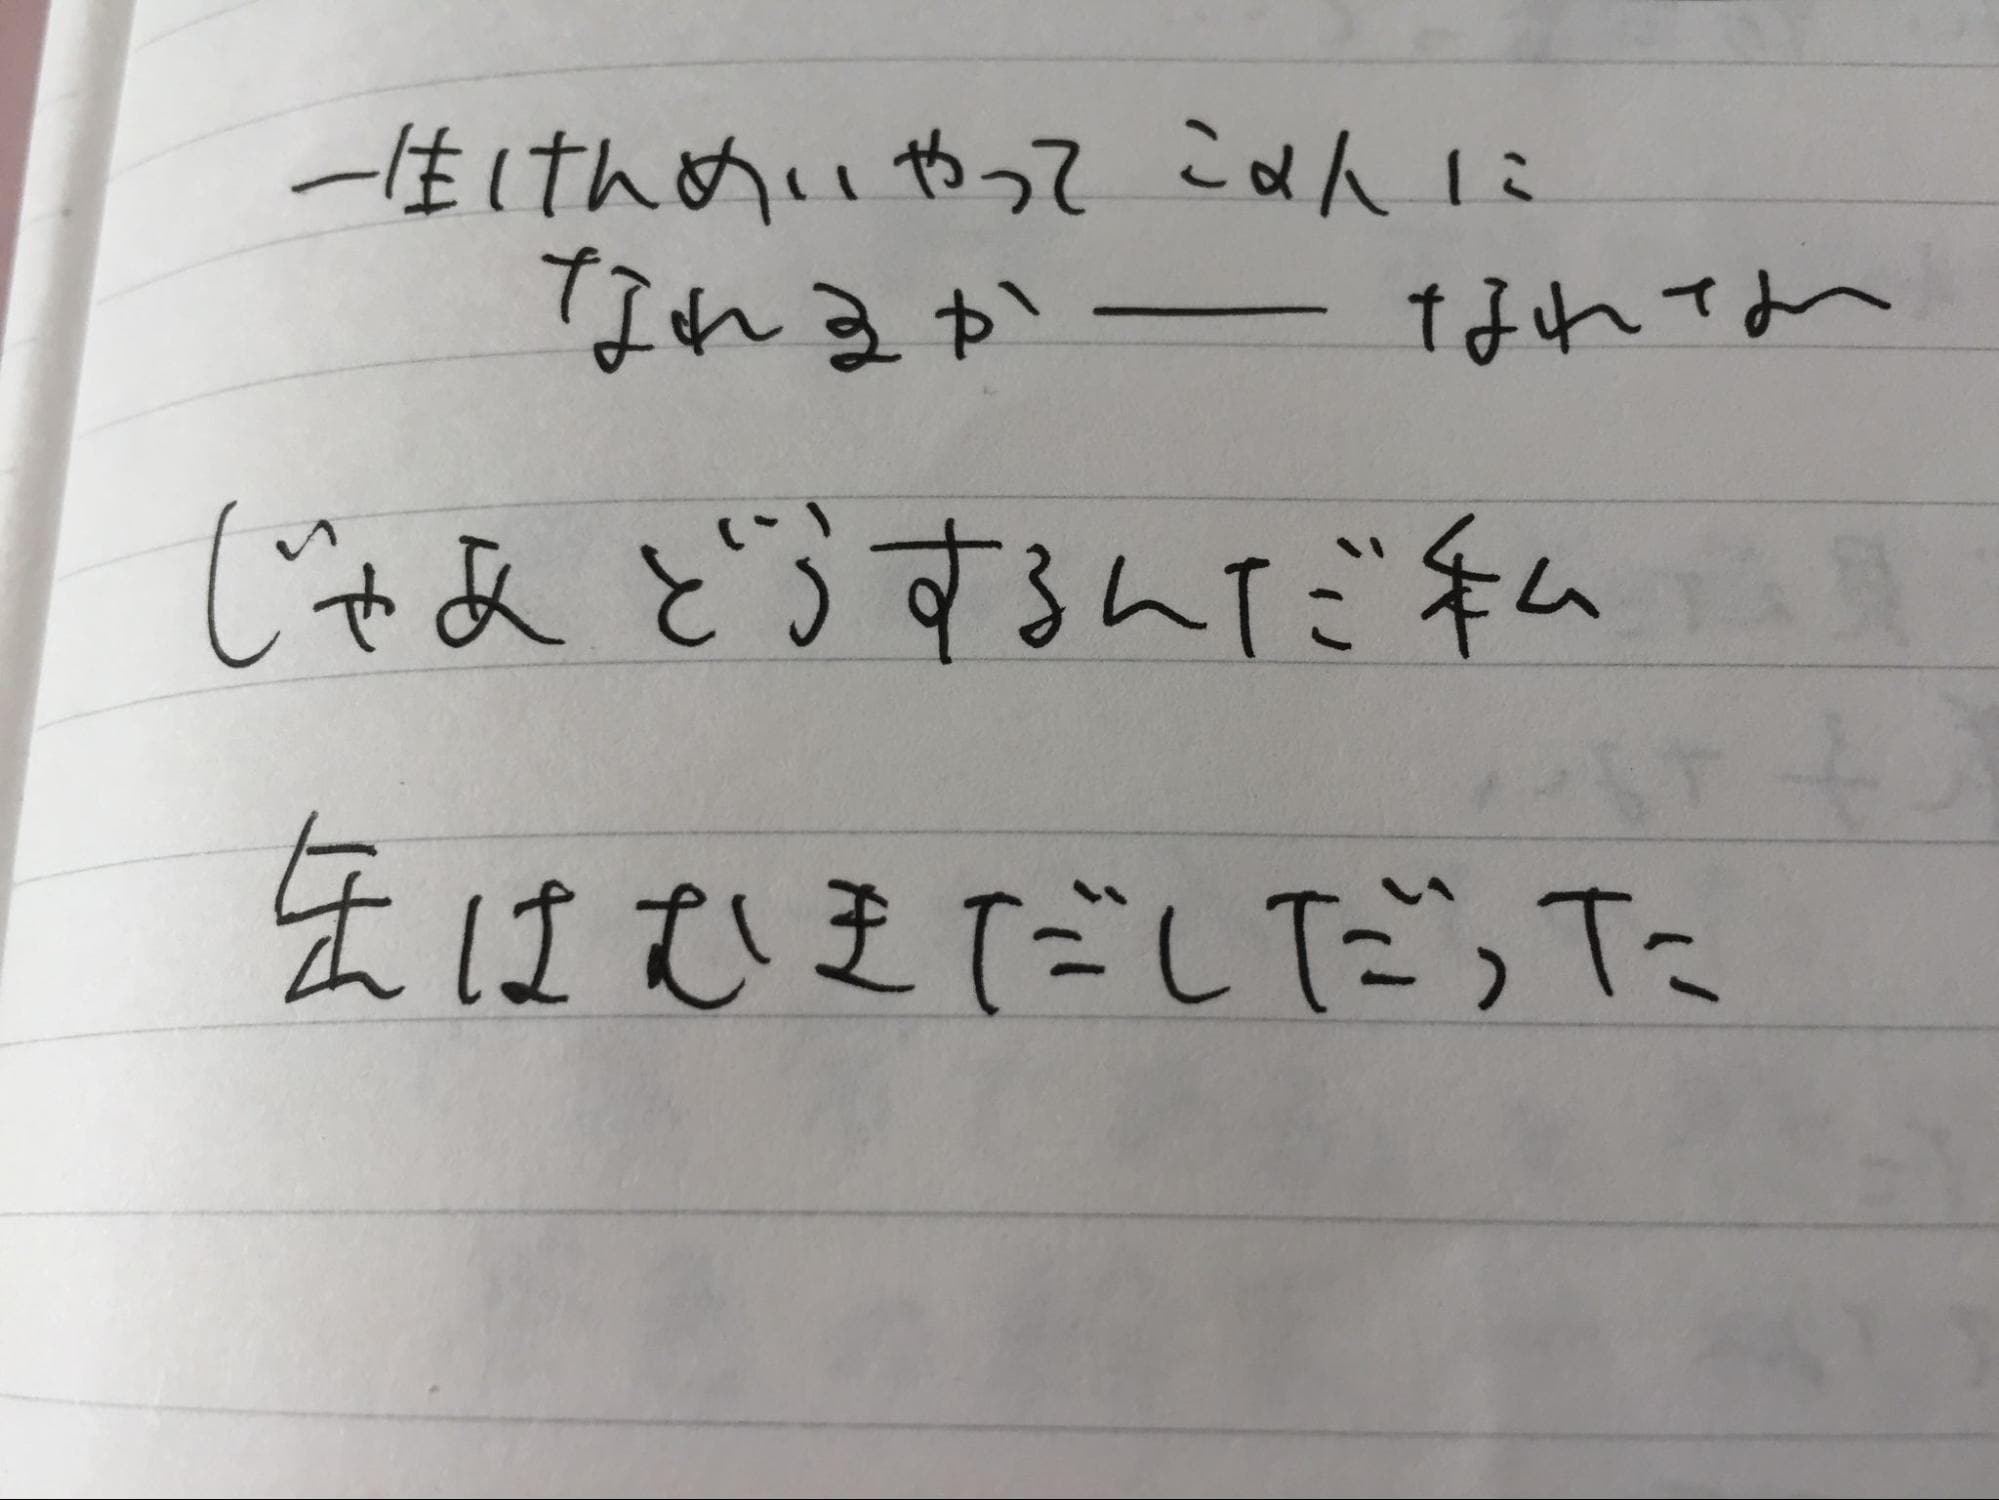 一生けんめいやって この人に
なれるか ―― なれなー
じゃあ どうするんだ 私
缶はむきだしだった